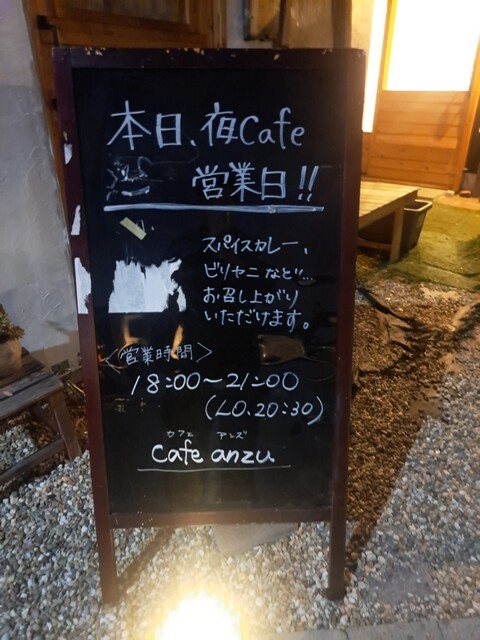 本日、夜Cafe
営業日!!
スパイスカレー、
ビリヤニなど…
お召し上がり
いただけます。
<営業時間>
18:00~21:00
(LO.20:30)
カフェ アンズ
Cafe anzu.